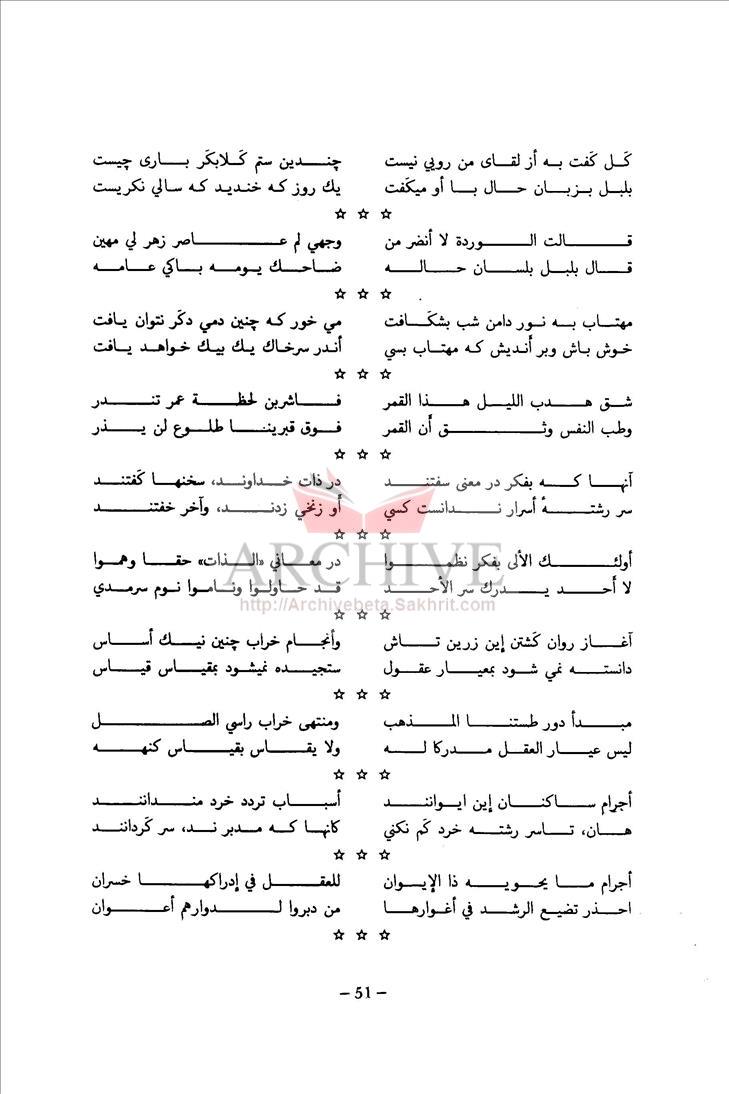 كَل كَفت به أز لقاى من رويي نيست چندين ستم كَلابكَر بارى چيست
بلبل بزبان حال با أو ميكَفت يك روز كه خنديد كه سالي نكريست
☆ ☆ ☆
قالت الوردة لا أنضر من وجهي لم عاصر زهر لي مهين
قال بلبل بلسان حاله ضاحك يومه باكي عامه
☆ ☆ ☆
مهتاب به نور دامن شب بشكَافت مي خور كه چنين دمي دكَر نتوان يافت
خوش باش وبر أنديش كه مهتاب بسي أندر سرخاك يك بيك خواهد يافت
☆ ☆ ☆
شق هدب الليل هذا القمر فاشربن لحظة عمر تندر
وطب النفس وثق أن القمر فوق قبريننا طلوع لن يذر
☆ ☆ ☆
آنها كه بفكر در معنى سفتند در ذات خداوند، سخنها كَفتند
سر رشتهٔ أسرار ندانست كسي أو زنخي زدند، وآخر خفتند
☆ ☆ ☆
أولئك الألى بفكر نظموا در معاني «الذات» حقا وهموا
لا أحد يدرك سر الأحد قد حاولوا وناموا نوم سرمدي
☆ ☆ ☆
آغاز روان كَشتن إين زرين تاش وأنجام خراب چنين نيك أساس
دانسته نمي شود بمعيار عقول ستجيده نميشود بمقياس قياس
☆ ☆ ☆
مبدأ دور طستنا المذهب ومنتهى خراب راسي الصل
ليس عيار العقل مدركا له ولا يقاس بقياس كنهه
☆ ☆ ☆
أجرام ساكنان إين ايوانند أسباب تردد خرد منداننند
هان، تاسر رشته خرد كم نكني كانها كه مدبر ند، سر كَردانند
☆ ☆ ☆
أجرام ما يحويه ذا الإيوان للعقل في إدراكها خسران
احذر تضيع الرشد في أغوارها من دبروا لدوارهم أعوان
☆ ☆ ☆
– 51 –
ARCHIVE
http://Archivebeta.Sakhrit.com